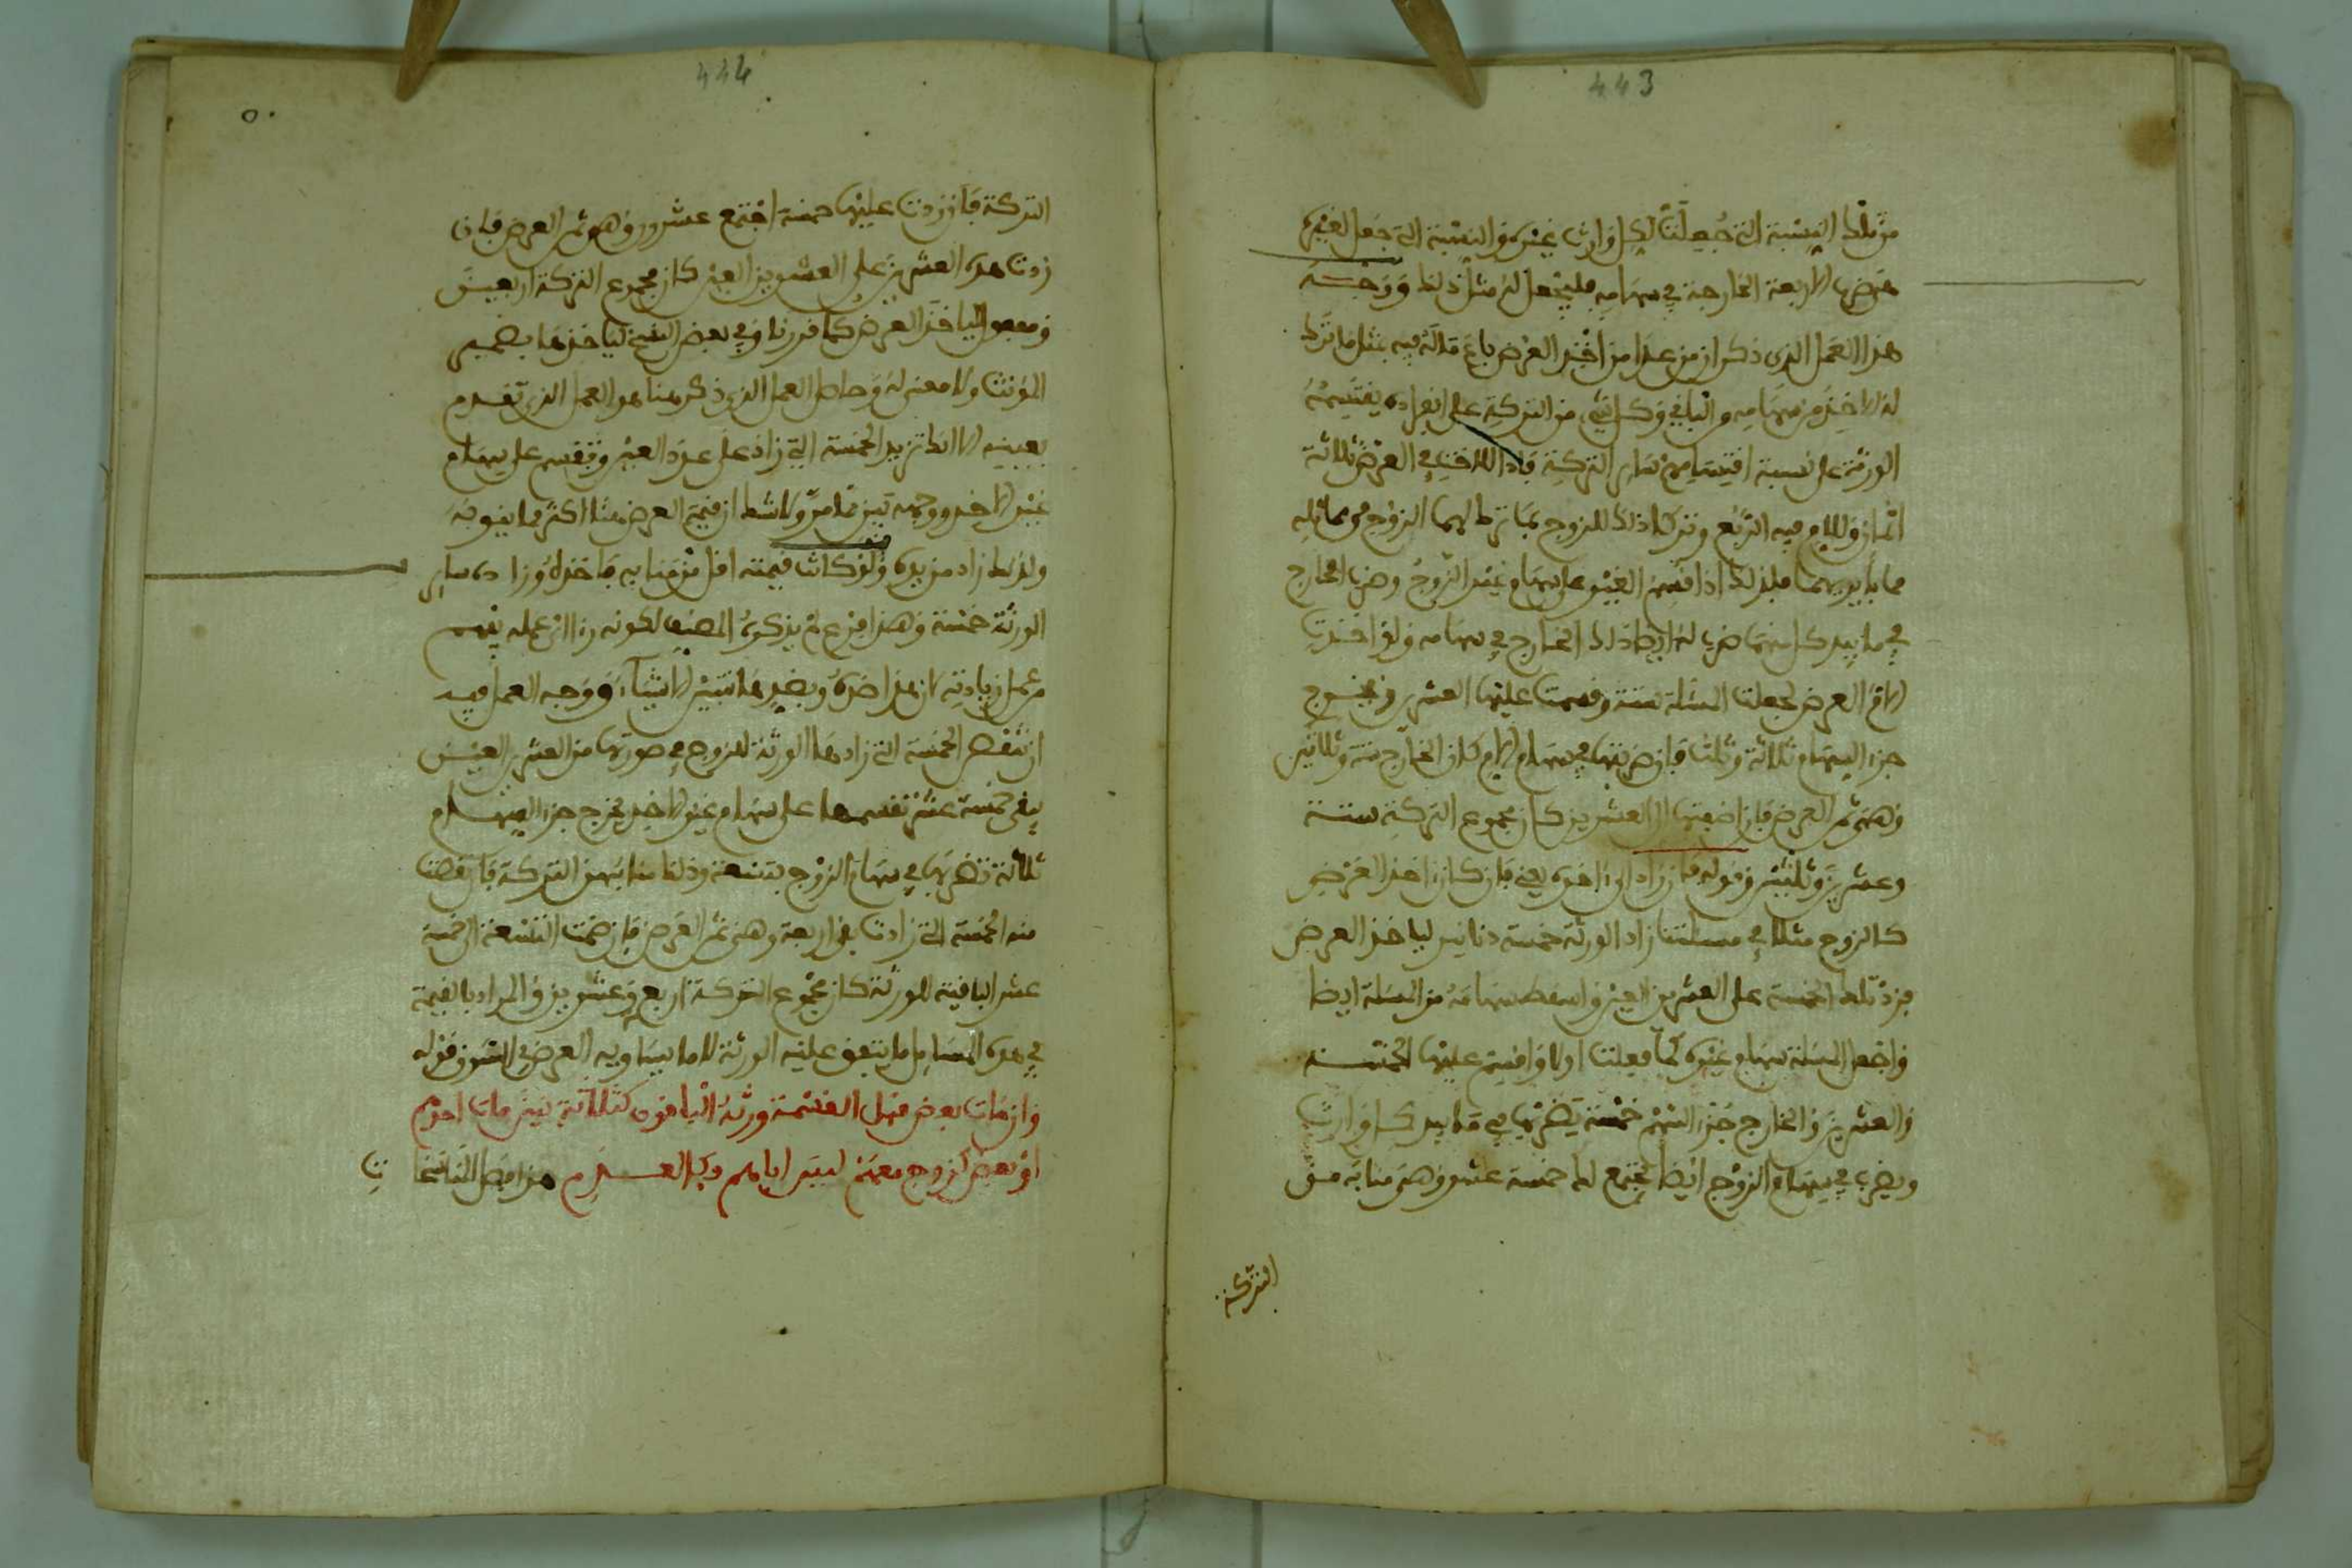 443
من تلك النسبة التي جعلت لكل وارث غيره والنسبة التي جعل الغير
هي ضرب الاربعة الخارجة في سهامه فليجعل له مثل ذلك ووجه
هذا العمل الذي ذكر ان من عدا من اخذ العرض باع ماله فيه بمثل ما ترك
له الاخذ من سهامه والباقي وكل شيء من التركة على انفراده يقتسمه
الورثة على نسبة اقتسامهم سائر التركة فاذا للاخت في العرض ثلاثة
اثمان وللام فيه الربع وتركتا ذلك للزوج بما ترك لهما الزوج من مماثله
مما بايديهما فلذلك اذا قسم العين على سهام غير الزوج وضرب الخارج
في ما بيد كل منهما ضرب له ايضا ذلك الخارج في سهامه ولو اخذت
الام العرض لجعلت المسئلة ستة وقسمت عليها العشرين يخرج
جزء السهم ثلاثة وثلث فان ضربتها في سهام الام كان الخارج ستة وثلاثين
وهي ثمن العرض فان اضفتها الى العشرين كان مجموع التركة ستة
وعشرين وثلثين وقوله فان زاد الى اخره يعني فان كان اخذ العرض
كالزوج مثلا في مسئلتنا زاد الورثة خمسة دنانير لياخذ العرض
فزد تلك الخمسة على العشرين العين واسقط سهامه من المسئلة ايضا
واجعل المسئلة سهام غيره كما فعلت اولا واقسم عليها الخمسة
والعشرين والخارج جزء السهم خمسة يضربها في ما بيد كل وارث
ويضرب في سهام الزوج ايضا يجتمع له خمسة عشر وهي منابه من
التركة
444
التركة فان زدت عليها خمسة اجتمع عشرون وهو ثمن العرض فان
زدت هذه العشرين على العشرين العين كان مجموع التركة اربعين
وقوله لياخذ العرض كما قررنا وفي بعض النسخ لياخذها بضمير
المؤنث ولا معنى له وحاصل العمل الذي ذكر هنا هو العمل الذي تقدم
بعينه الا انك تزيد الخمسة التي زاد على عدد العين وتقسم على سهام
غير الاخذ ووجهه تبين مما مر ولا شك ان قيمة العرض هنا اكثر مما ينوبه
ولذلك زاد من يده ولو كانت قيمته اقل من منابه فاخذه وزاده سائر
الورثة خمسة وهذا فرع لم يذكره المصنف لكونه راى ان عمله يفهم
من عمل زيادته لان هذا ضده وبضدها تتبين الاشياء ووجه العمل فيه
ان تنقص الخمسة التي زادها الورثة للزوج في صورتها من العشرين العين
يبقى خمسة عشر تقسمها على سهام غير الاخذ يخرج جزء السهم
ثلاثة تضربها في سهام الزوج بتسعة وذلك منابه من التركة فان نقصت
منه الخمسة التي زادت بقي اربعة وهي ثمن العرض فان ضمت التسعة الى خمسة
عشر الباقية للورثة كان مجموع التركة اربع وعشرين والمراد بالقيمة
في هذه المسائل ما يتفق عليه الورثة لا ما يساويه العرض في السوق قوله
وان مات بعض قبل القسمة ورثه الباقون كثلاثة بنين مات احدهم
او بعض كزوج معهم ليس اباهم فكالعدم هذا فصل المناسخات